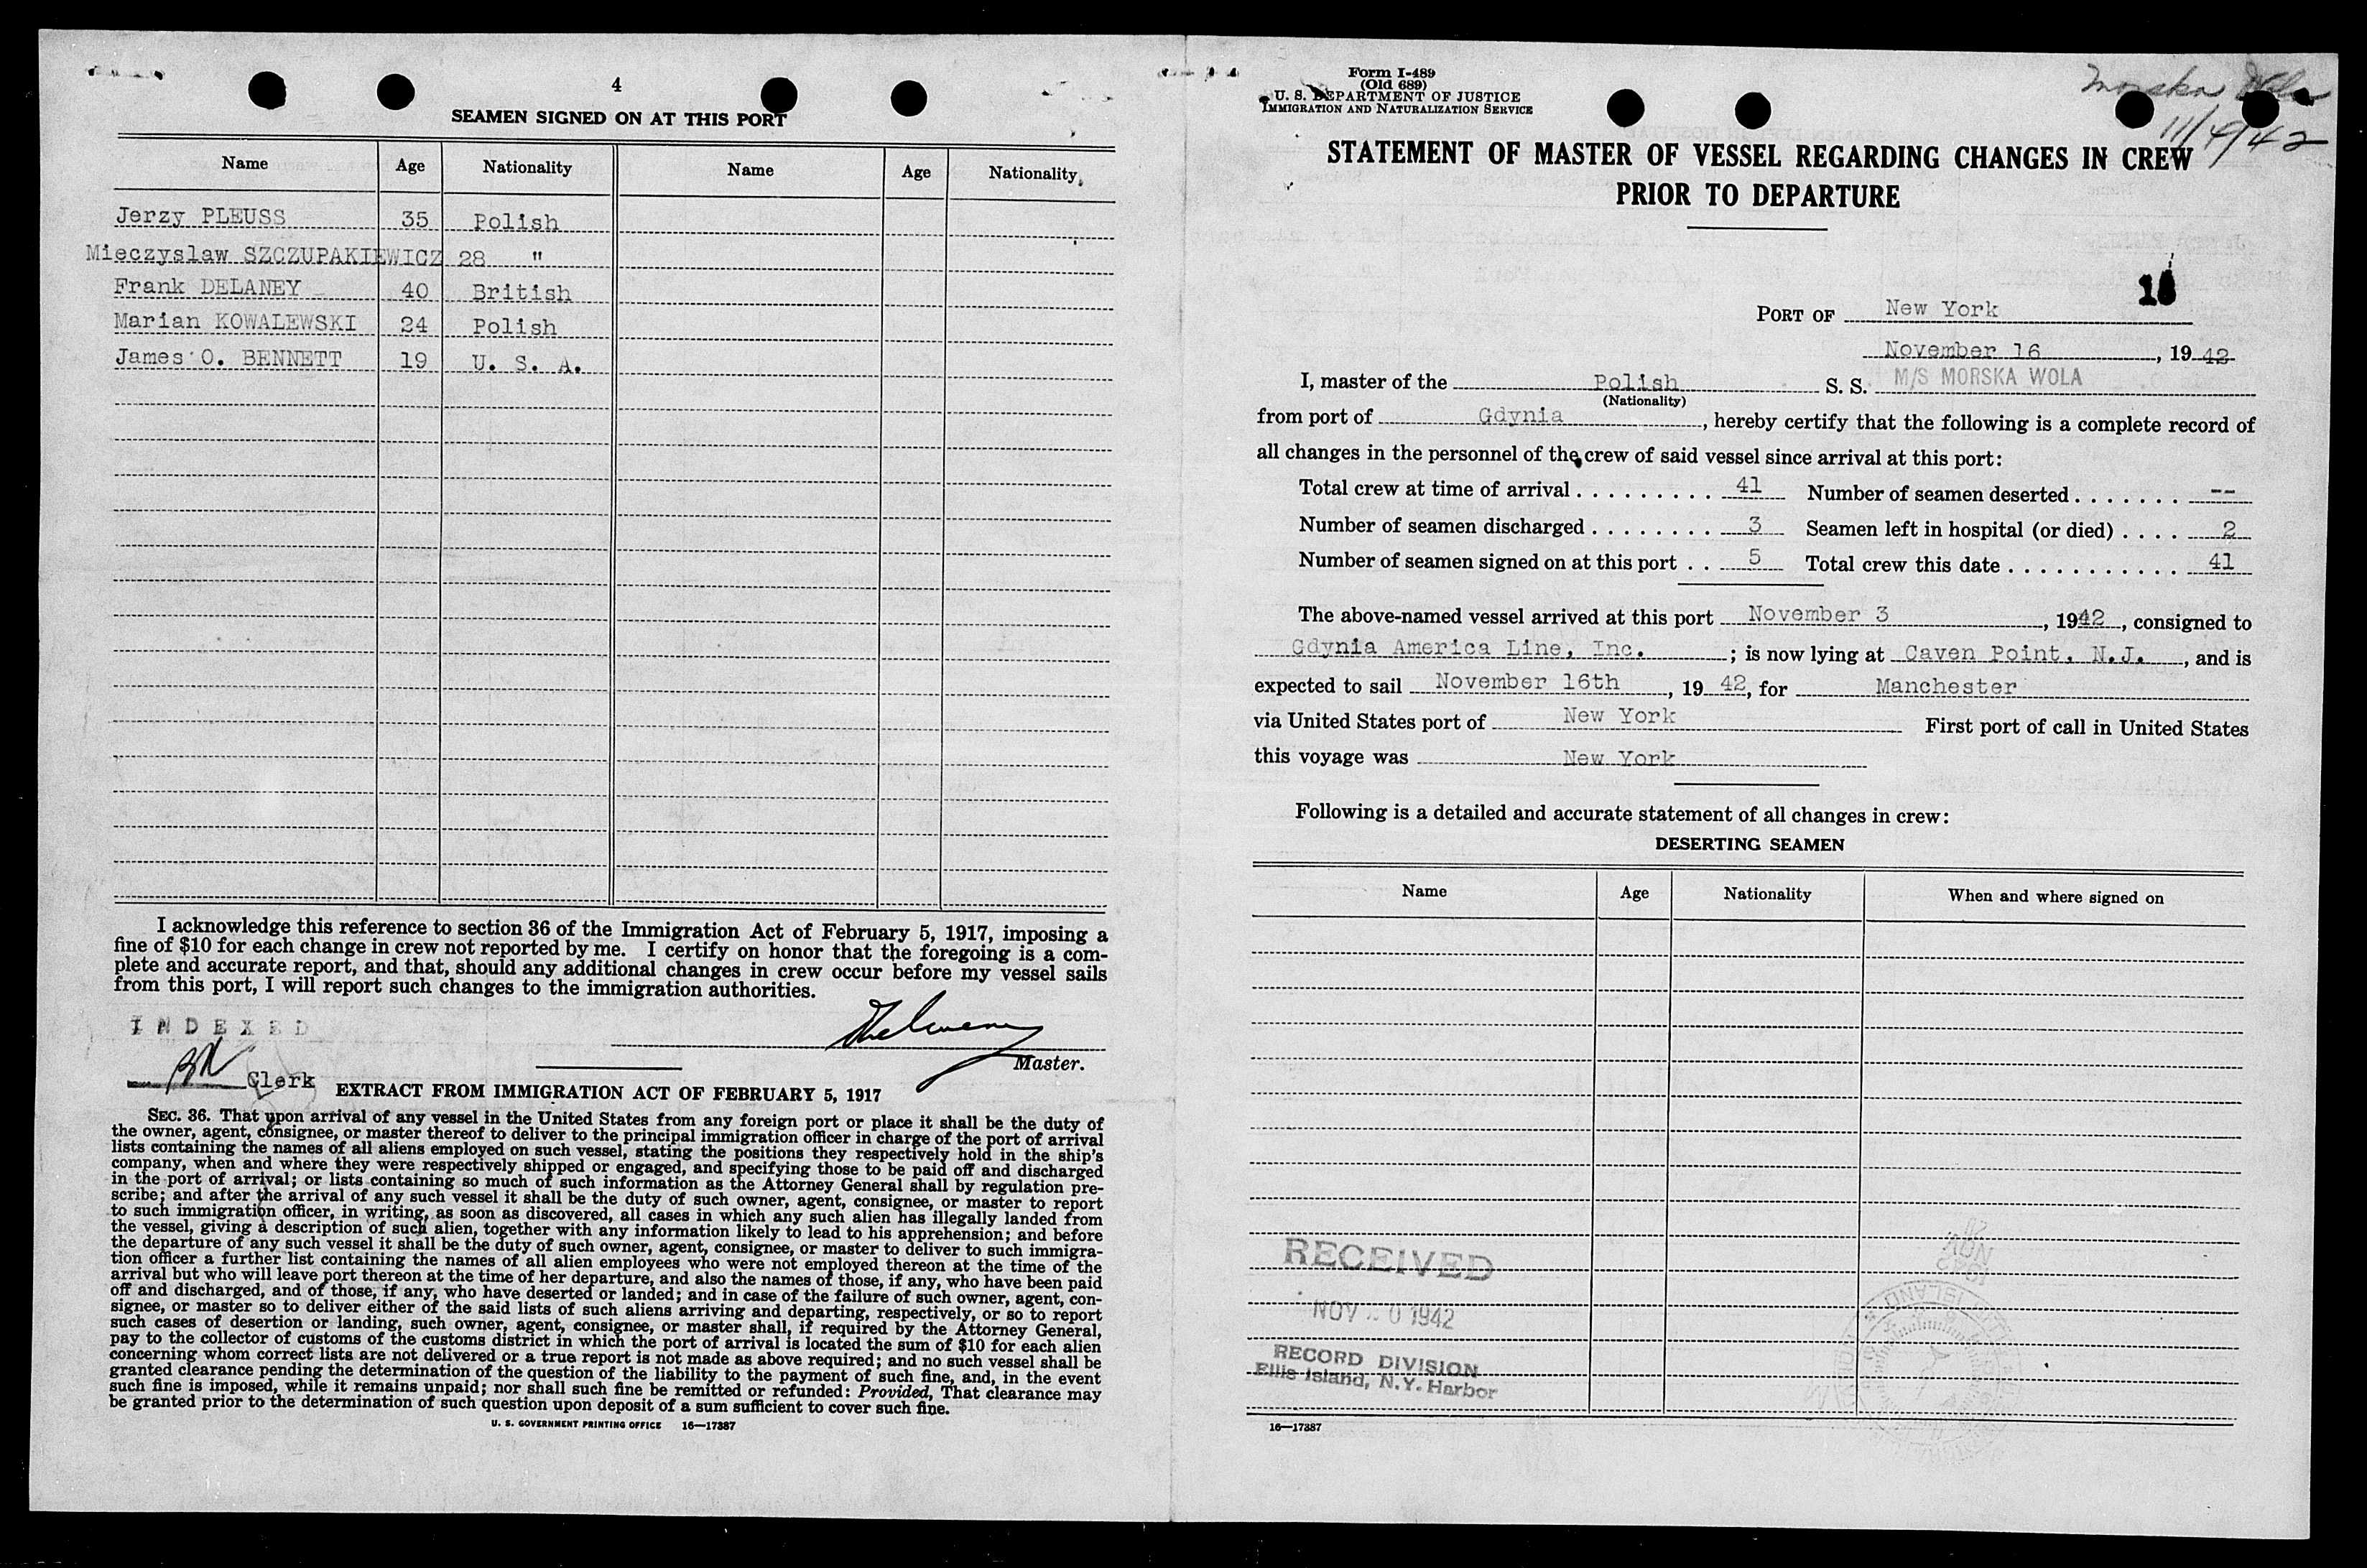 4
SEAMEN SIGNED ON AT THIS PORT
Name Age Nationality Name Age Nationality
Jerzy PLEUSS 35 Polish
Mieczyslaw SZCZUPAKIEWICZ 28 "
Frank DELANEY 40 British
Marian KOWALEWSKI 24 Polish
James O. BENNETT 19 U. S. A.
I acknowledge this reference to section 36 of the Immigration Act of February 5, 1917, imposing a
fine of $10 for each change in crew not reported by me. I certify on honor that the foregoing is a com-
plete and accurate report, and that, should any additional changes in crew occur before my vessel sails
from this port, I will report such changes to the immigration authorities.
INDEXED
Master.
Clerk
EXTRACT FROM IMMIGRATION ACT OF FEBRUARY 5, 1917
SEC. 36. That upon arrival of any vessel in the United States from any foreign port or place it shall be the duty of
the owner, agent, consignee, or master thereof to deliver to the principal immigration officer in charge of the port of arrival
lists containing the names of all aliens employed on such vessel, stating the positions they respectively hold in the ship's
company, when and where they were respectively shipped or engaged, and specifying those to be paid off and discharged
in the port of arrival; or lists containing so much of such information as the Attorney General shall by regulation pre-
scribe; and after the arrival of any such vessel it shall be the duty of such owner, agent, consignee, or master to report
to such immigration officer, in writing, as soon as discovered, all cases in which any such alien has illegally landed from
the vessel, giving a description of such alien, together with any information likely to lead to his apprehension; and before
the departure of any such vessel it shall be the duty of such owner, agent, consignee, or master to deliver to such immigra-
tion officer a further list containing the names of all alien employees who were not employed thereon at the time of the
arrival but who will leave port thereon at the time of her departure, and also the names of those, if any, who have been paid
off and discharged, and of those, if any, who have deserted or landed; and in case of the failure of such owner, agent, con-
signee, or master so to deliver either of the said lists of such aliens arriving and departing, respectively, or so to report
such cases of desertion or landing, such owner, agent, consignee, or master shall, if required by the Attorney General,
pay to the collector of customs of the customs district in which the port of arrival is located the sum of $10 for each alien
concerning whom correct lists are not delivered or a true report is not made as above required; and no such vessel shall be
granted clearance pending the determination of the question of the liability to the payment of such fine, and, in the event
such fine is imposed, while it remains unpaid; nor shall such fine be remitted or refunded: Provided, That clearance may
be granted prior to the determination of such question upon deposit of a sum sufficient to cover such fine.
U. S. GOVERNMENT PRINTING OFFICE 16—17387
Form I-489
(Old 689)
U. S. DEPARTMENT OF JUSTICE
IMMIGRATION AND NATURALIZATION SERVICE
Morska Wola
11/4/42
STATEMENT OF MASTER OF VESSEL REGARDING CHANGES IN CREW
PRIOR TO DEPARTURE
PORT OF New York
November 16, 19 42
I, master of the Polish S. S. M/S MORSKA WOLA
(Nationality)
from port of Gdynia, hereby certify that the following is a complete record of
all changes in the personnel of the crew of said vessel since arrival at this port:
Total crew at time of arrival . . . . . . . . . 41 Number of seamen deserted . . . . . . . --
Number of seamen discharged . . . . . . . . 3 Seamen left in hospital (or died) . . . . 2
Number of seamen signed on at this port . . 5 Total crew this date . . . . . . . . . . . 41
The above-named vessel arrived at this port November 3, 1942, consigned to
Gdynia America Line, Inc. ; is now lying at Caven Point, N.J., and is
expected to sail November 16th, 19 42, for Manchester
via United States port of New York First port of call in United States
this voyage was New York
Following is a detailed and accurate statement of all changes in crew:
DESERTING SEAMEN
Name Age Nationality When and where signed on
RECEIVED
NOV 0 1942
RECORD DIVISION
Ellis Island, N.Y. Harbor
16—17387